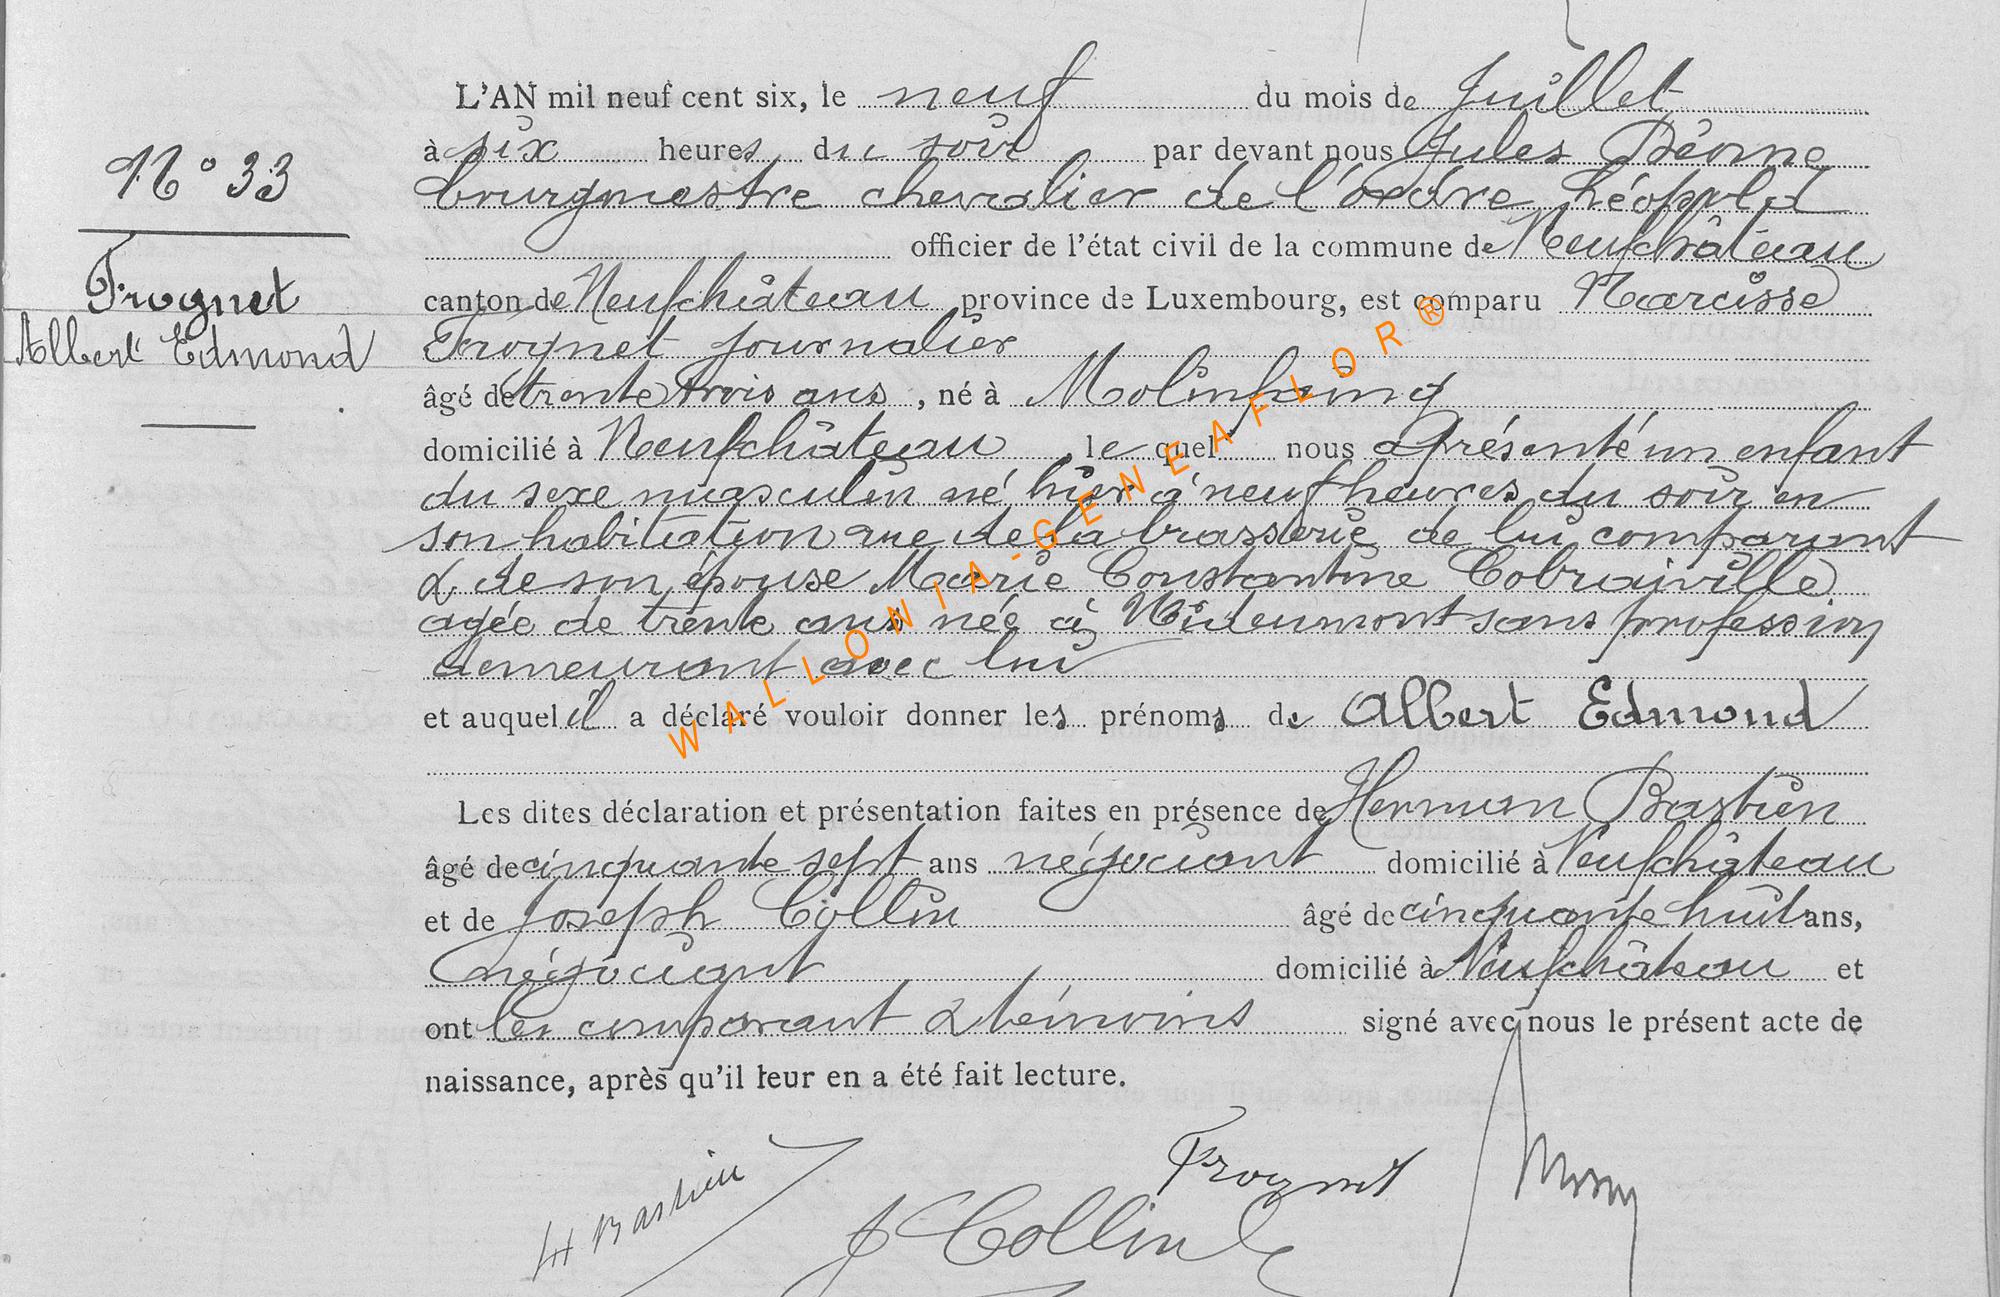 N° 33
Frognet
Albert Edmond
L'AN mil neuf cent six, le neuf du mois de Juillet
à six heures du soir par devant nous Jules
bourgmestre chevalier de l'ordre Léopold
officier de l'état civil de la commune de Neufchâteau
canton de Neufchâteau province de Luxembourg, est comparu Narcisse
Frognet journalier
âgé de trente trois ans, né à Molinfaing
domicilié à Neufchâteau lequel nous a présenté un enfant
du sexe masculin né hier à neuf heures du soir en
son habitation rue de la brasserie de lui comparant
& de son épouse Marie Constantine Cobraiville
agée de trente ans née à sans profession
demeurant avec lui
et auquel il a déclaré vouloir donner les prénoms de Albert Edmond
Les dites déclaration et présentation faites en présence de Herman Bastien
âgé de cinquante sept ans négociant domicilié à Neufchâteau
et de Joseph Collin âgé de cinquante huit ans,
négociant domicilié à Neufchâteau et
ont les comparant & témoins signé avec nous le présent acte de
naissance, après qu'il leur en a été fait lecture.
H Bastien
Frognet
J Collin
WALLONIA-GENEAFLOR®